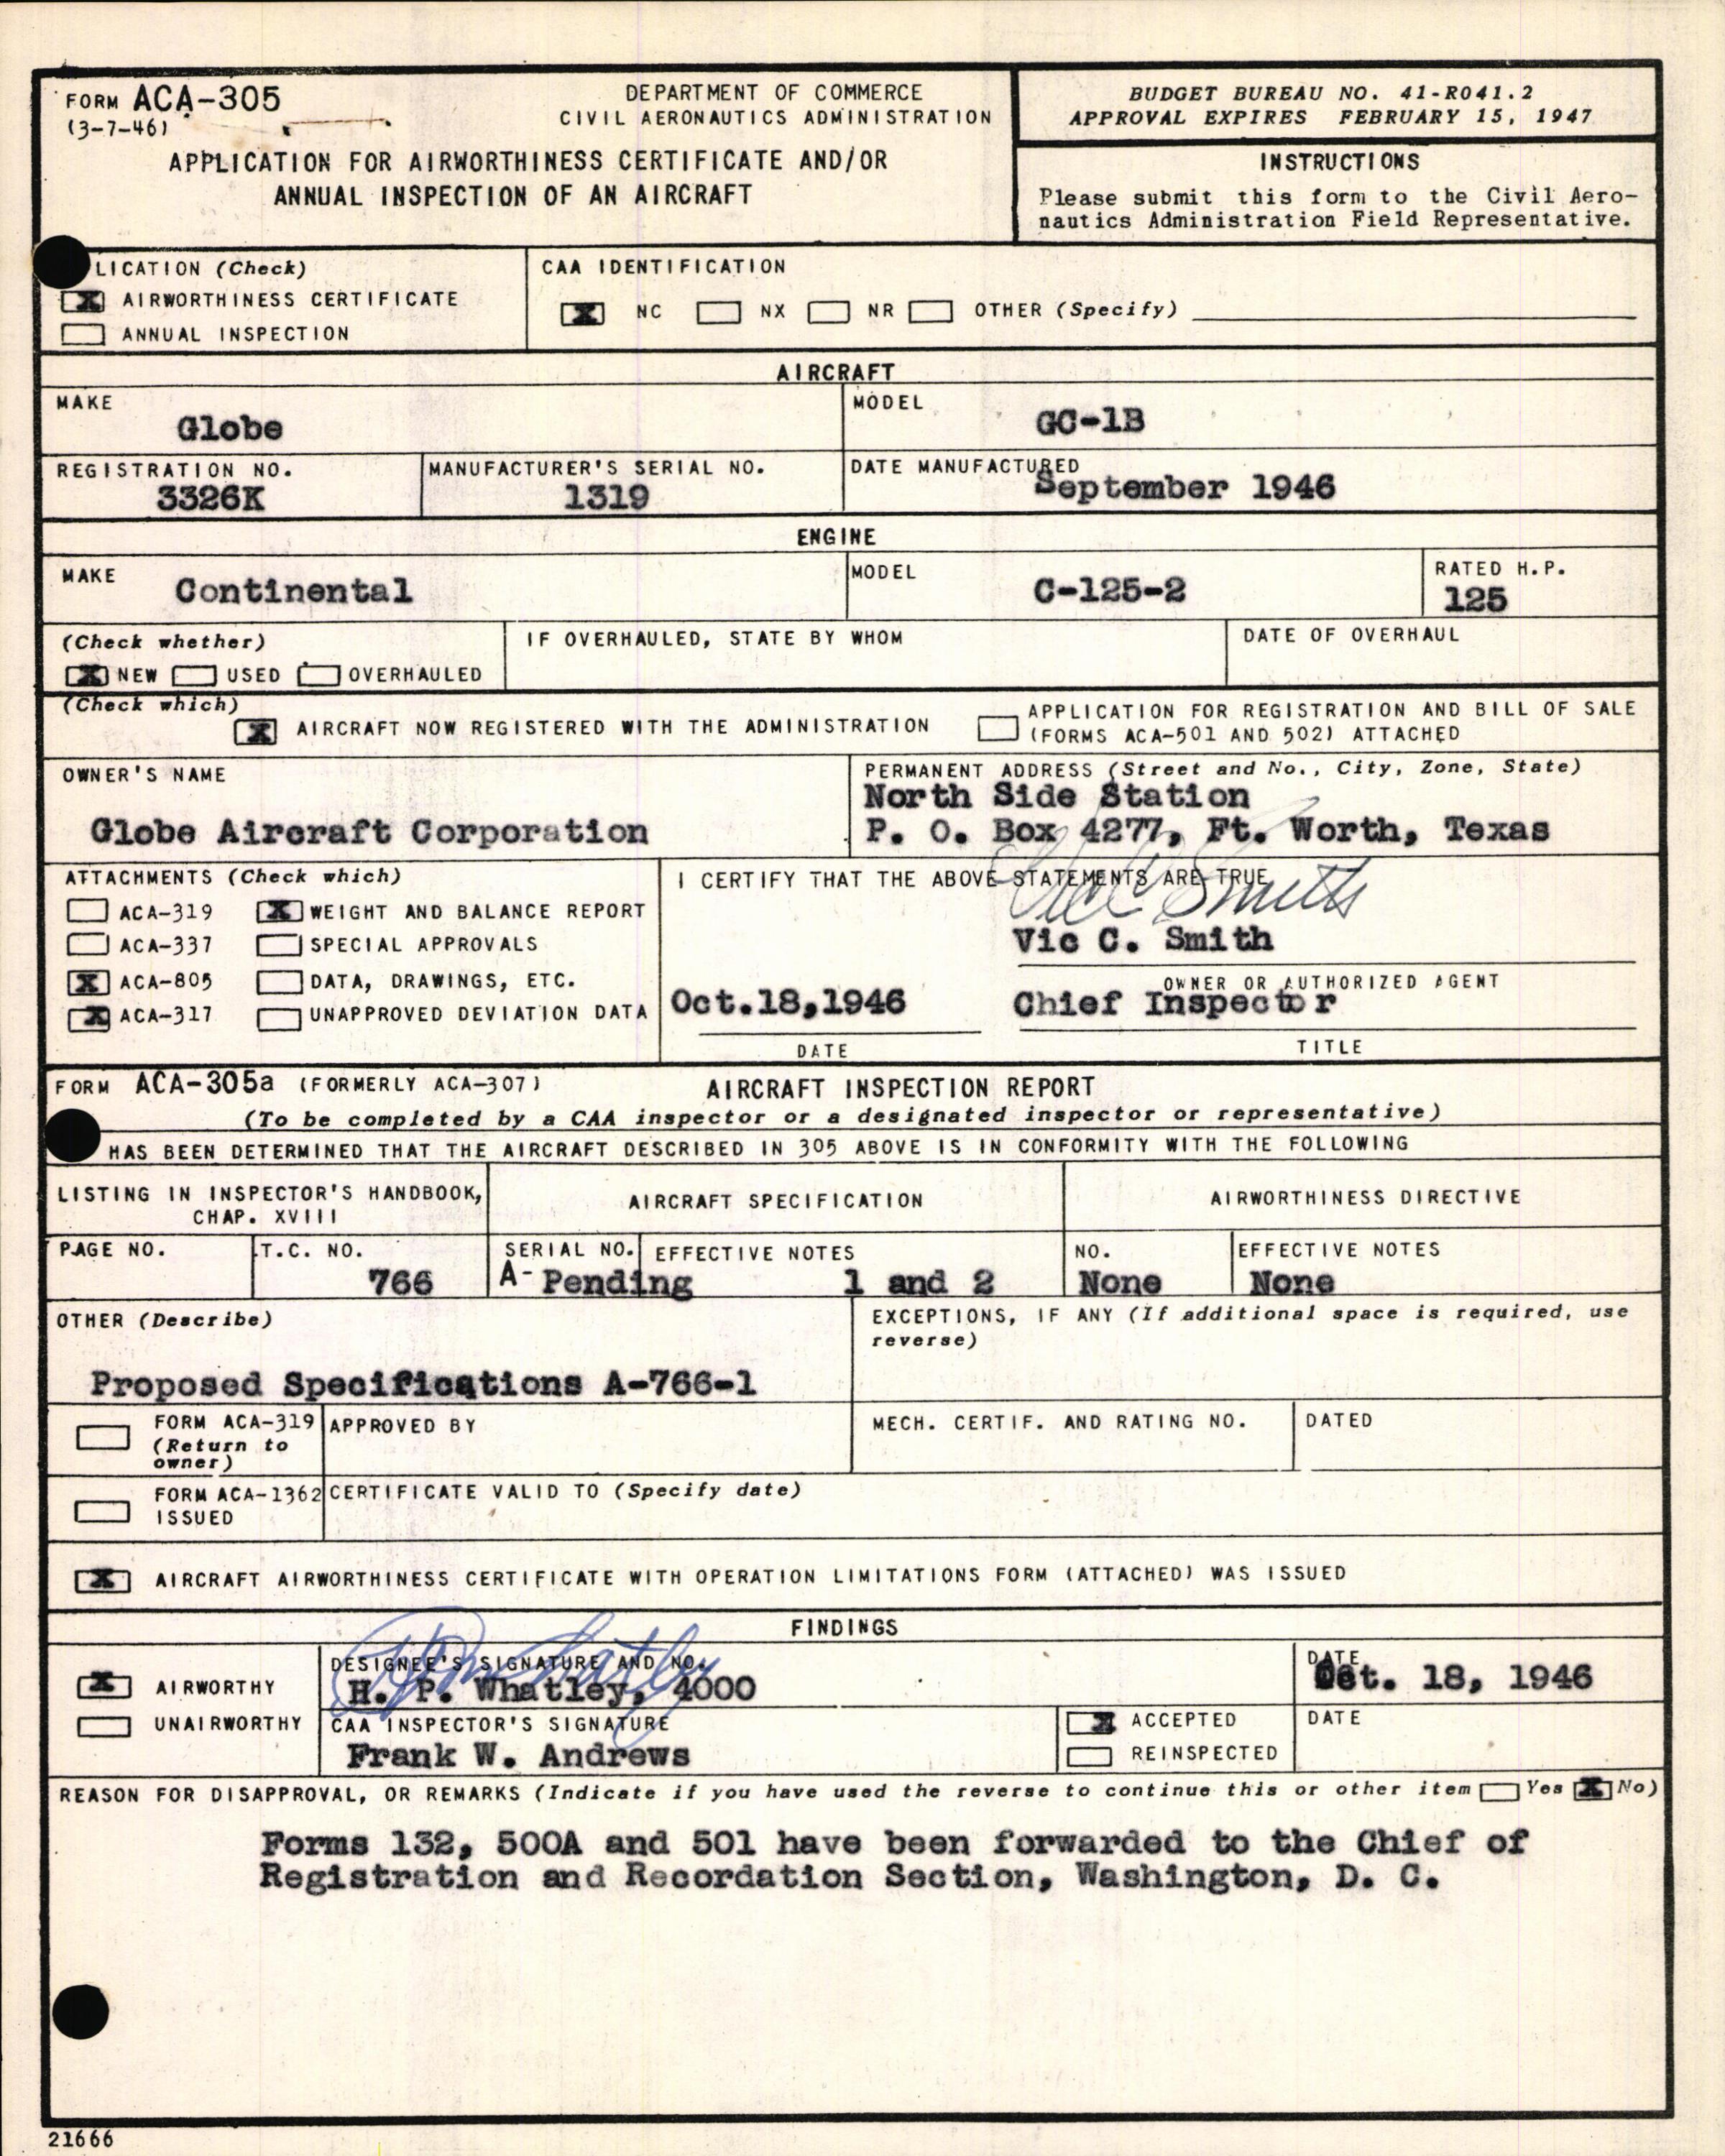 FORM ACA-305
(3-7-46)
DEPARTMENT OF COMMERCE
CIVIL AERONAUTICS ADMINISTRATION
APPLICATION FOR AIRWORTHINESS CERTIFICATE AND/OR
ANNUAL INSPECTION OF AN AIRCRAFT
BUDGET BUREAU NO. 41-R041.2
APPROVAL EXPIRES FEBRUARY 15, 1947
INSTRUCTIONS
Please submit this form to the Civil Aero-
nautics Administration Field Representative.
LICATION (Check)
X AIRWORTHINESS CERTIFICATE
ANNUAL INSPECTION
CAA IDENTIFICATION
X NC NX NR OTHER (Specify)
AIRCRAFT
MAKE
Globe
MODEL
GC-1B
REGISTRATION NO.
3326K
MANUFACTURER'S SERIAL NO.
1319
DATE MANUFACTURED
September 1946
ENGINE
MAKE
Continental
MODEL
C-125-2
RATED H.P.
125
(Check whether)
X NEW USED OVERHAULED
IF OVERHAULED, STATE BY WHOM
DATE OF OVERHAUL
(Check which)
X AIRCRAFT NOW REGISTERED WITH THE ADMINISTRATION
APPLICATION FOR REGISTRATION AND BILL OF SALE
(FORMS ACA-501 AND 502) ATTACHED
OWNER'S NAME
Globe Aircraft Corporation
PERMANENT ADDRESS (Street and No., City, Zone, State)
North Side Station
P. O. Box 4277, Ft. Worth, Texas
ATTACHMENTS (Check which)
ACA-319 X WEIGHT AND BALANCE REPORT
ACA-337 SPECIAL APPROVALS
X ACA-805 DATA, DRAWINGS, ETC.
X ACA-317 UNAPPROVED DEVIATION DATA
I CERTIFY THAT THE ABOVE STATEMENTS ARE TRUE
Vic C Smith
Vic C. Smith
OWNER OR AUTHORIZED AGENT
Oct.18,1946 Chief Inspector
DATE TITLE
FORM ACA-305a (FORMERLY ACA-307) AIRCRAFT INSPECTION REPORT
(To be completed by a CAA inspector or a designated inspector or representative)
HAS BEEN DETERMINED THAT THE AIRCRAFT DESCRIBED IN 305 ABOVE IS IN CONFORMITY WITH THE FOLLOWING
LISTING IN INSPECTOR'S HANDBOOK,
CHAP. XVIII
AIRCRAFT SPECIFICATION
AIRWORTHINESS DIRECTIVE
PAGE NO.
T.C. NO.
766
SERIAL NO.
A- Pending
EFFECTIVE NOTES
1 and 2
NO.
None
EFFECTIVE NOTES
None
OTHER (Describe)
Proposed Specifications A-766-1
EXCEPTIONS, IF ANY (If additional space is required, use
reverse)
FORM ACA-319
(Return to
owner)
APPROVED BY
MECH. CERTIF. AND RATING NO.
DATED
FORM ACA-1362
ISSUED
CERTIFICATE VALID TO (Specify date)
X AIRCRAFT AIRWORTHINESS CERTIFICATE WITH OPERATION LIMITATIONS FORM (ATTACHED) WAS ISSUED
FINDINGS
X AIRWORTHY
UNAIRWORTHY
DESIGNEE'S SIGNATURE AND NO.
HP Whatley
H. P. Whatley, 4000
DATE
Oct. 18, 1946
CAA INSPECTOR'S SIGNATURE
Frank W. Andrews
X ACCEPTED
REINSPECTED
DATE
REASON FOR DISAPPROVAL, OR REMARKS (Indicate if you have used the reverse to continue this or other item Yes X No)
Forms 132, 500A and 501 have been forwarded to the Chief of
Registration and Recordation Section, Washington, D. C.
21666